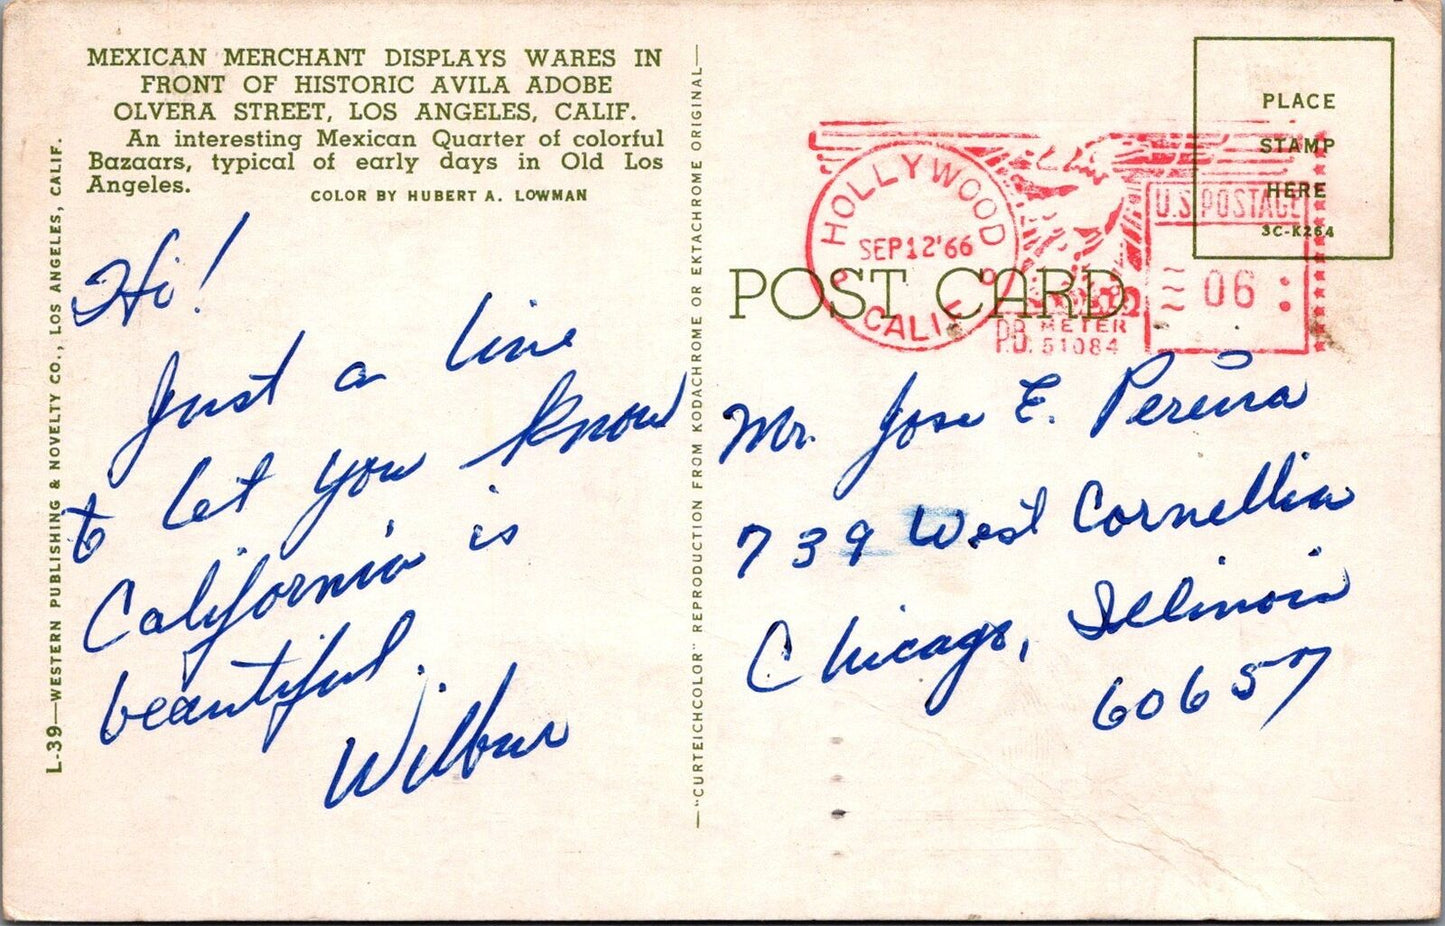 MEXICAN MERCHANT DISPLAYS WARES IN
FRONT OF HISTORIC AVILA ADOBE
OLVERA STREET, LOS ANGELES, CALIF.
An interesting Mexican Quarter of colorful
Bazaars, typical of early days in Old Los
Angeles.
COLOR BY HUBERT A. LOWMAN
L-39—WESTERN PUBLISHING & NOVELTY CO., LOS ANGELES, CALIF.
Hi!
Just a line
to let you know
California is
beautiful.
Wilbur
—"CURTEICHCOLOR" REPRODUCTION FROM KODACHROME OR EKTACHROME ORIGINAL—
POST CARD
PLACE
STAMP
HERE
3C-K264
HOLLYWOOD
SEP12'66
CALIF
U.S.POSTAGE
06
P.B. METER
51084
Mr. Jose E. Pereira
739 West Cornellia
Chicago, Illinois
60657